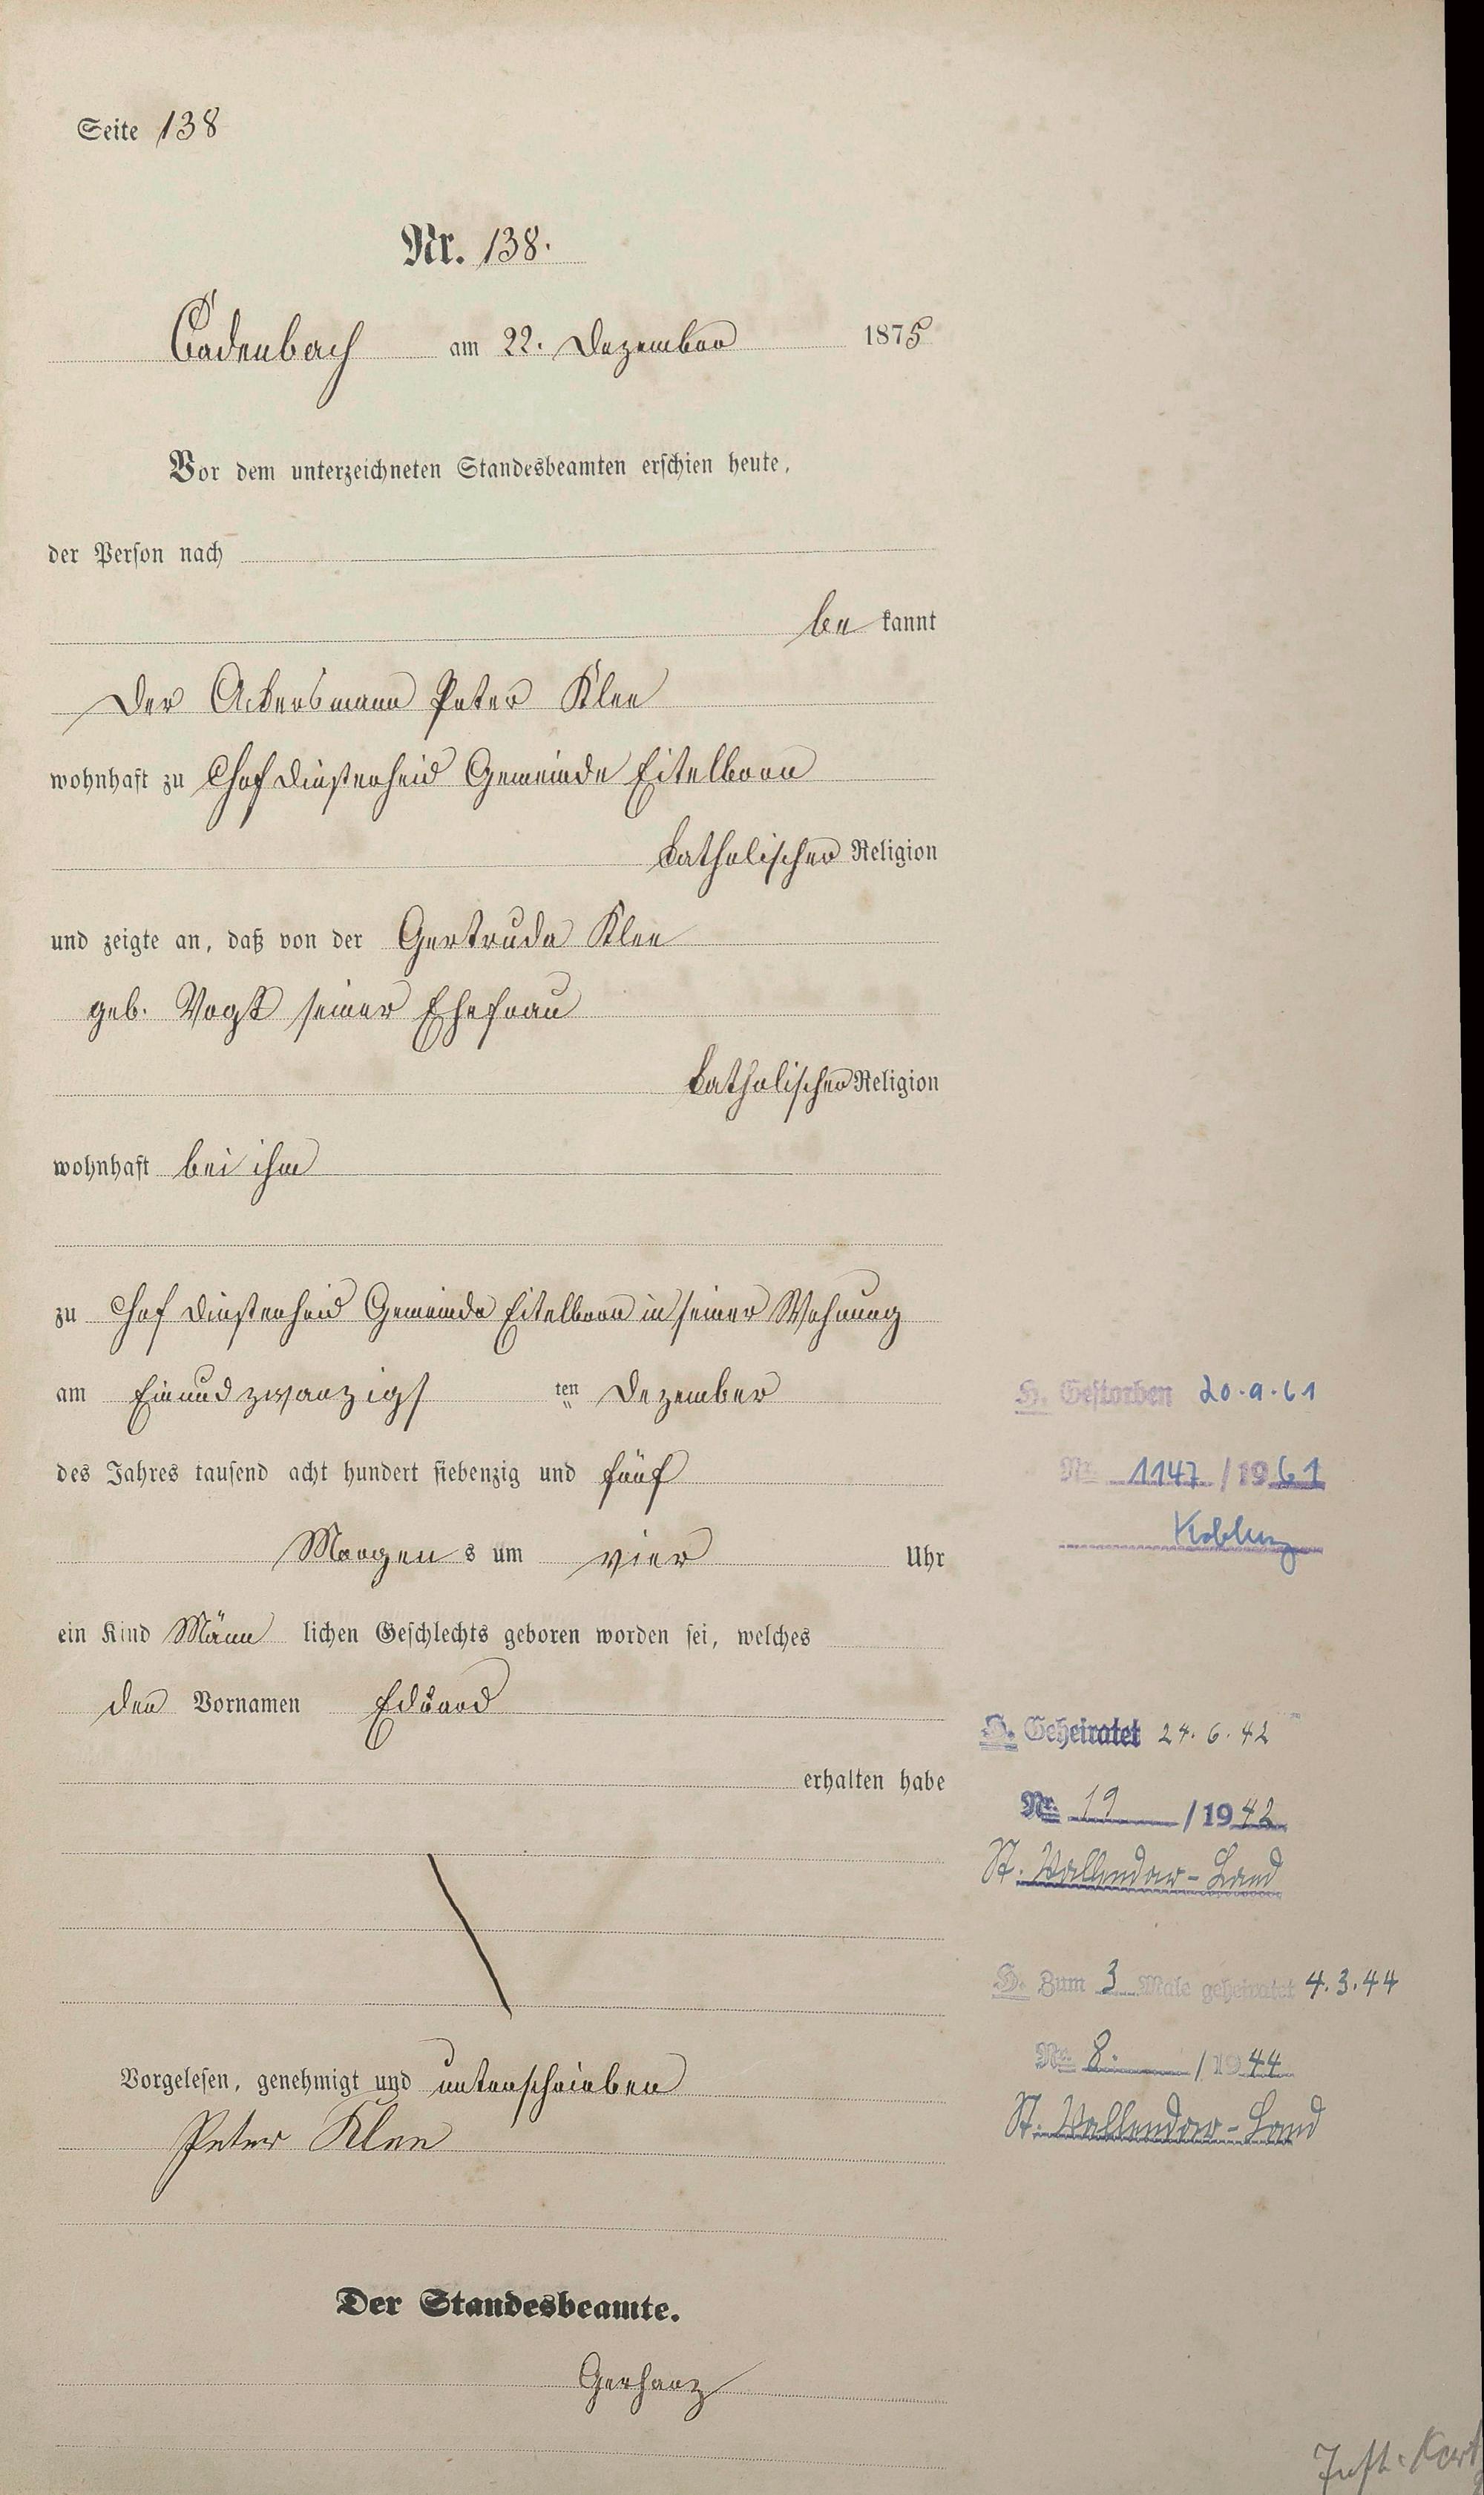 Seite 138
Nr. 138.
Cadenbach am 22. Dezember 1875
Vor dem unterzeichneten Standesbeamten erschien heute,
der Person nach
be kannt
der Ackersmann Peter Klee
wohnhaft zu Hof Dinsterheid Gemeinde Eitelborn
katholischer Religion
und zeigte an, daß von der Gertrude Klee
geb. Vogt seiner Ehefrau
katholischer Religion
wohnhaft bei ihm
zu Hof Dinsterheid Gemeinde Eitelborn in seiner Wohnung
am Einundzwanzigs ten Dezember
des Jahres tausend acht hundert siebenzig und fünf
Morgen s um vier Uhr
ein Kind Männ lichen Geschlechts geboren worden sei, welches
den Vornamen Eduard
erhalten habe
Vorgelesen, genehmigt und unterschrieben
Peter Klee
Der Standesbeamte.
Gerharz
H. Gestorben 20.9.61
Nr. 1147 / 1961
Koblenz
H. Geheiratet 24.6.42
Nr. 19 / 1942
St. Vallendar-Land
H. Zum 3 Male geheiratet 4.3.44
Nr. 8. / 1944
St. Vallendar-Land